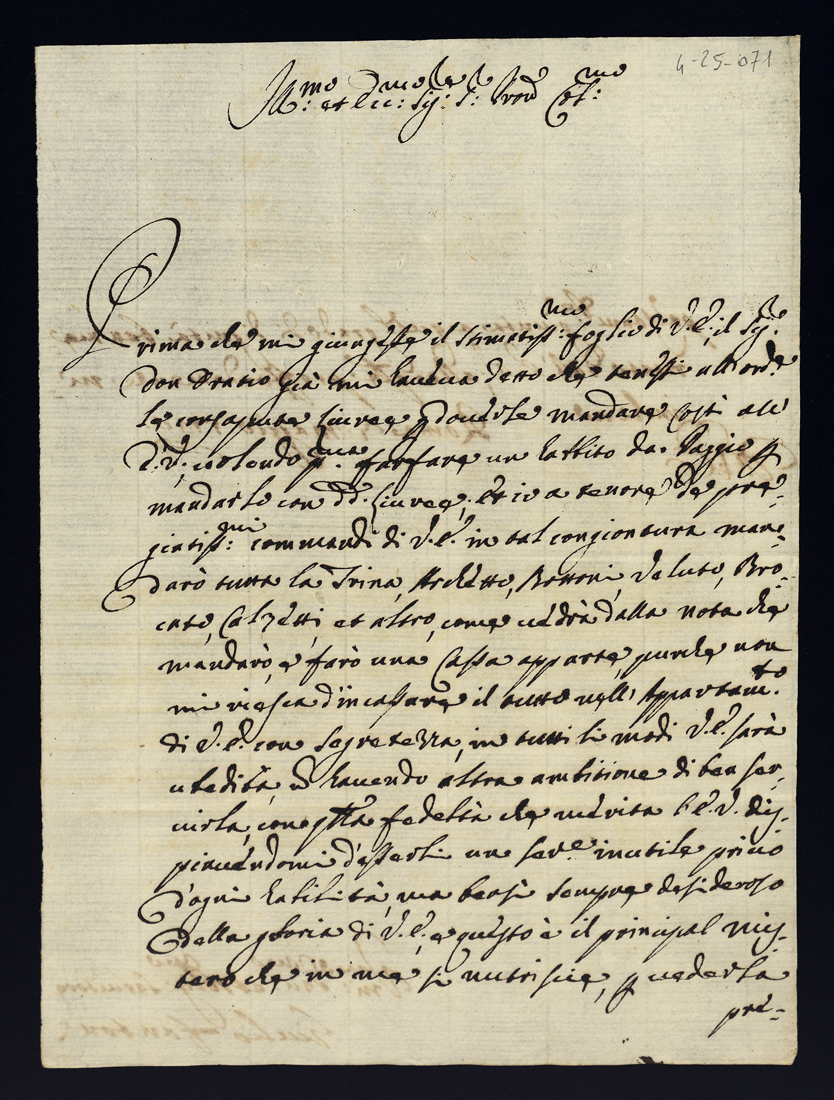 4-25-071
Ill:mo et Ecc:mo Sig:re S:r Pron Col:mo
Prima che mi giungesse il stimatiss:mo foglio di V.E., il Sig.r
Don Oratio già mi haueua detto che tenessi all'ord.e
le consapute liuree p douerle mandare costì all
E.V., uolendo p.ma far fare un habbito da Paggio p
mandarlo con dd. liuree, et io a tenore de pre-
giatiss:mi commandi di V.E. in tal congiontura man-
darò tutta la Trina, Archetto, Bottoni, Veluto, Bro-
cato, Calzetti, et altro, come uedrà dalla nota che
mandarò, e farò una Cassa apparte, purche non
mi riesca d'incassare il tutto nell'Appartam.to
di V.E. con segretezza, in tutti li modi V.E. sarà
ubedita, ñ hauendo altra ambitione di ben ser-
uirla, con qlla fedeltà che merita l'E.V. dis-
piacendomi d'esserli un ser.e inutile priuo
d'ogni habilità, ma bensì sempre desideroso
della gloria di V.E., e questo è il principal mis-
tero che in me si nutrisce, p uederla
pre-